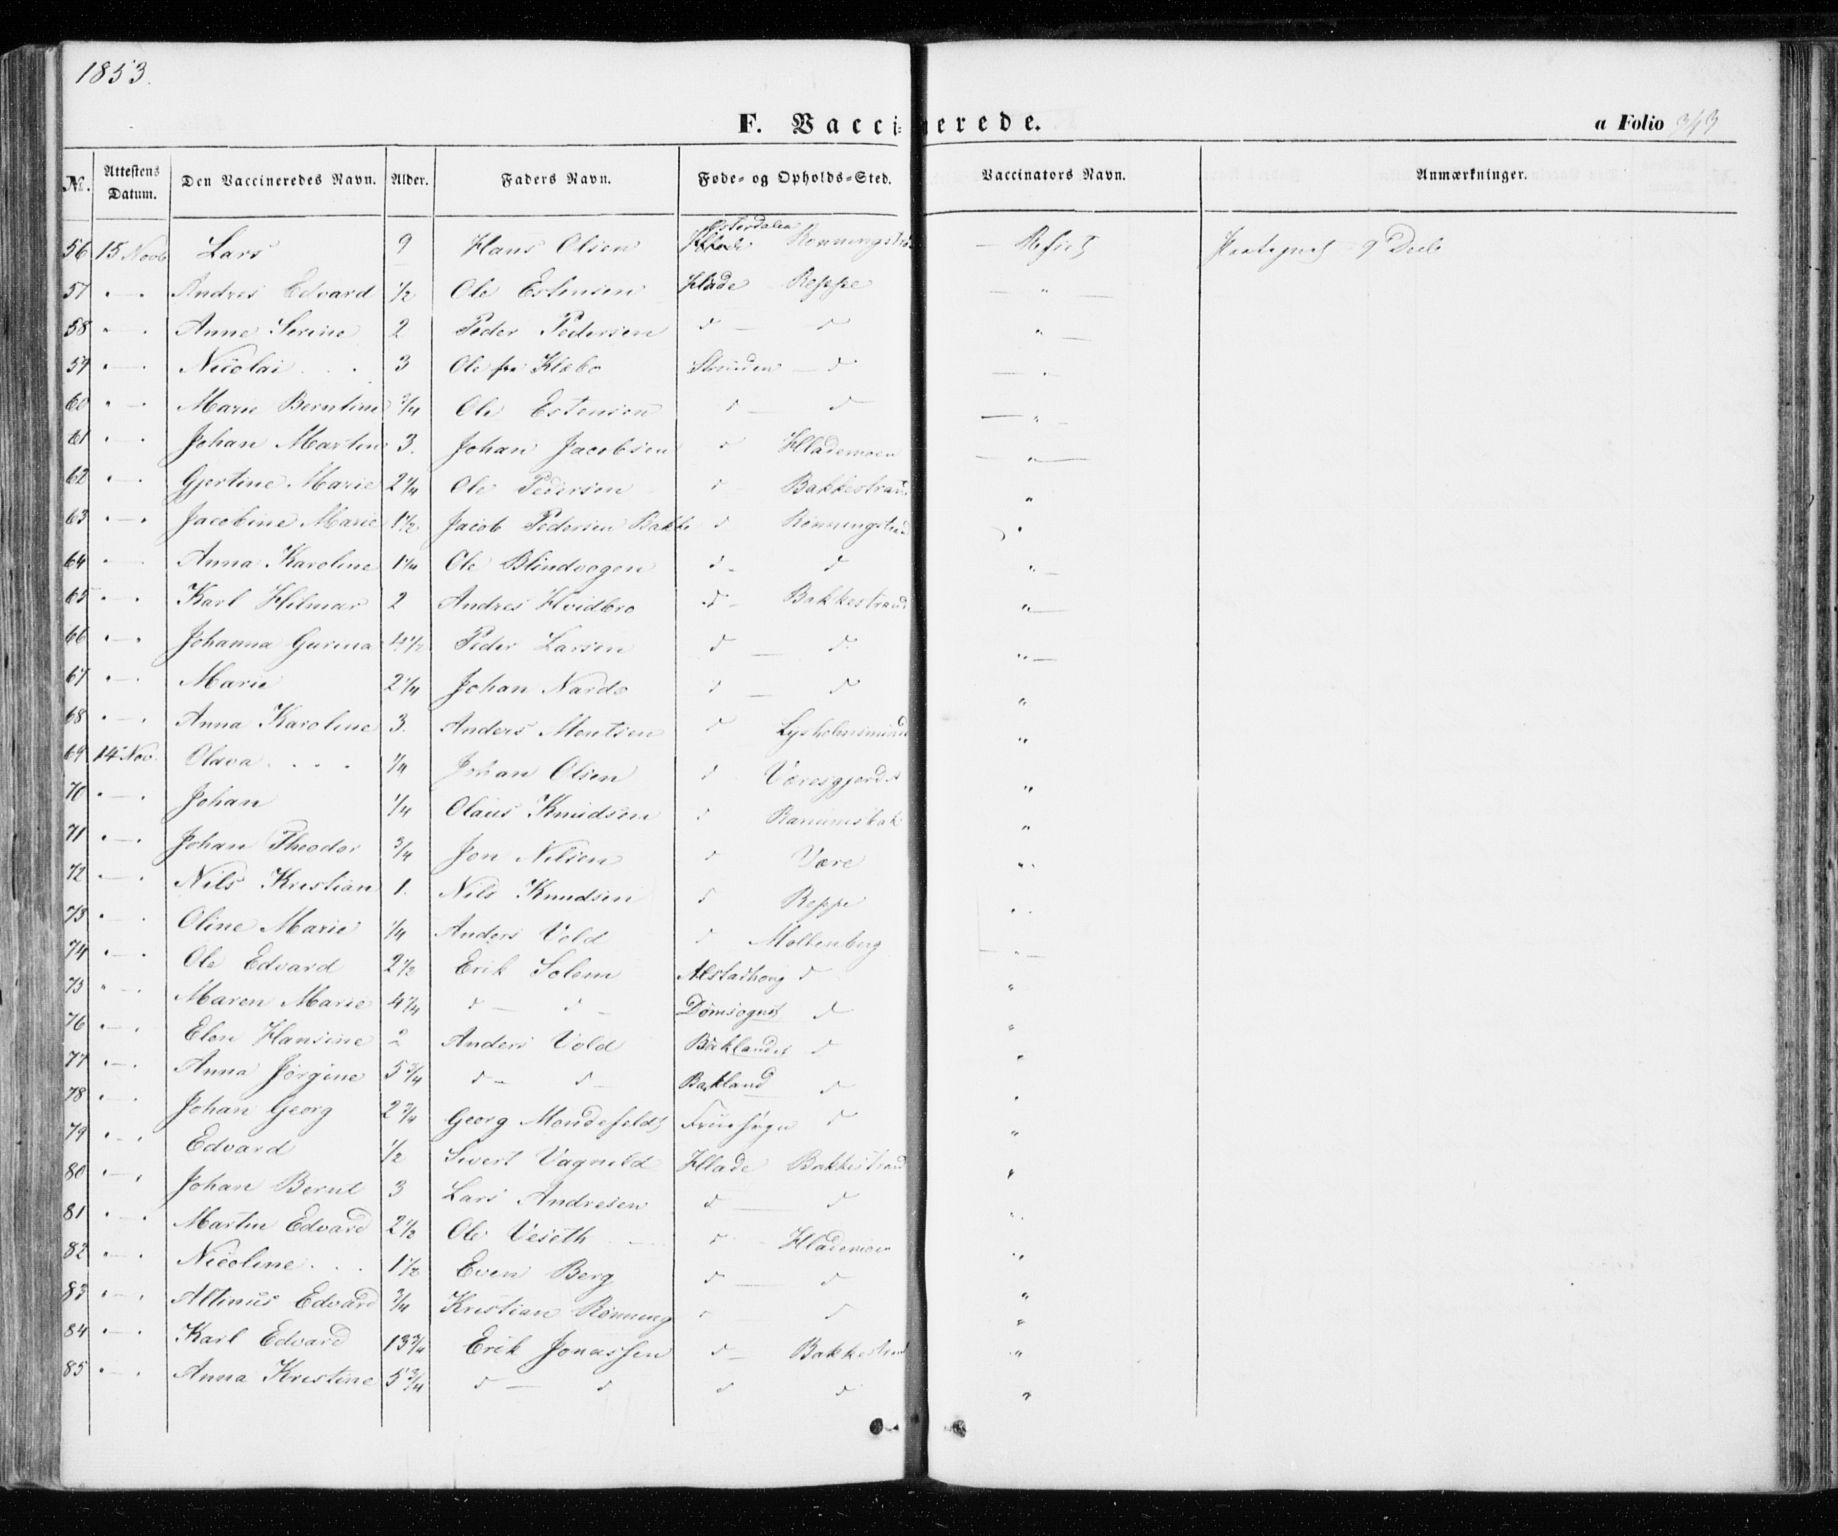 1853.
F. Vaccinerede. a Folio 343
No. Attestens Datum. Den Vaccineredes Navn. Alder. Faders Navn. Føde- og Opholds-Sted. Vaccinators Navn. Anmærkninger.
Østerdalen
56 15 Novb Lars 9 Hans Olsen Rønningst
57 " — " Andres Edvard 1/2 Ole Estensen Hlade Reppe — " —
58 " — Anne Serine 2 Peder Pedersen d — d "
59 " — " Nicolai . . . 3 Ole fra Klæbo Strinden — d — "
60 " — " Marie Berntine 3/4 Ole Estensen d — d — "
61 " — " Johan Martin 3. Johan Jacobsen d Hlademoen — " —
62 " — " Gjertine Marie 2 1/4 Ole Pedersen d Bakkestrand "
63 " — " Jacobine Marie 1 1/2 Jacob Pedersen Bakke d Rønningstrand "
64 " — Anna Karoline 1 1/4 Ole Blindvogen d — d " —
65 " — " Karl Hilmar 2 Andres Hvidbro d — Bakkestrand " —
66 " — " Johanna Gurina 4 1/2 Peder Larsen d — d " —
67 " — " Marie 2 1/4 Johan Nardo d — d "
68 " — " Anna Karoline 3. Anders Mentsen d "
69 14 Nov. Olava . . . . 1/4 Johan Olsen d Væresgjerdet "
70 " — " Johan 1/4 Olaus Knudsen d "
71 " — " Johan Theodor 3/4 Jon Nilsen d Være "
72 " — " Nils Kristian 1. Nils Knudsen d Reppe "
73 " — " Oline Marie 1/4 Anders Vold d Moltenberg — " —
74 " — " Ole Edvard 2 1/2 Erik Solem Alstadhoug d "
75 " — " Maren Marie 4 1/4 d — d — Domsognet d "
76 " — " Elen Hansine 2 Anders Vold Baklandet d "
77 " — " Anna Jørgine 5 3/4 d — d — Bakland d "
78 " — " Johan Georg 2 3/4 Georg d "
79 " — " Edvard 1/2 Sivert Vagnild Hlade Bakkestrand "
80 " — " Johan Bernt 3 Lars Andresen d — d "
81 " — " Martin Edvard 2 1/2 Ole Veseth d Hlademoen "
82 " — " Nicoline . . . 1 1/2 Even Berg d — d "
83 " — " Altinus Edvard 3/4 Kristian Rønning d "
84 " — " Karl Edvard 13 3/4 Erik Jonassen d — Bakkestrand "
85 " — " Anna Kristine 5 3/4 d — d d d "